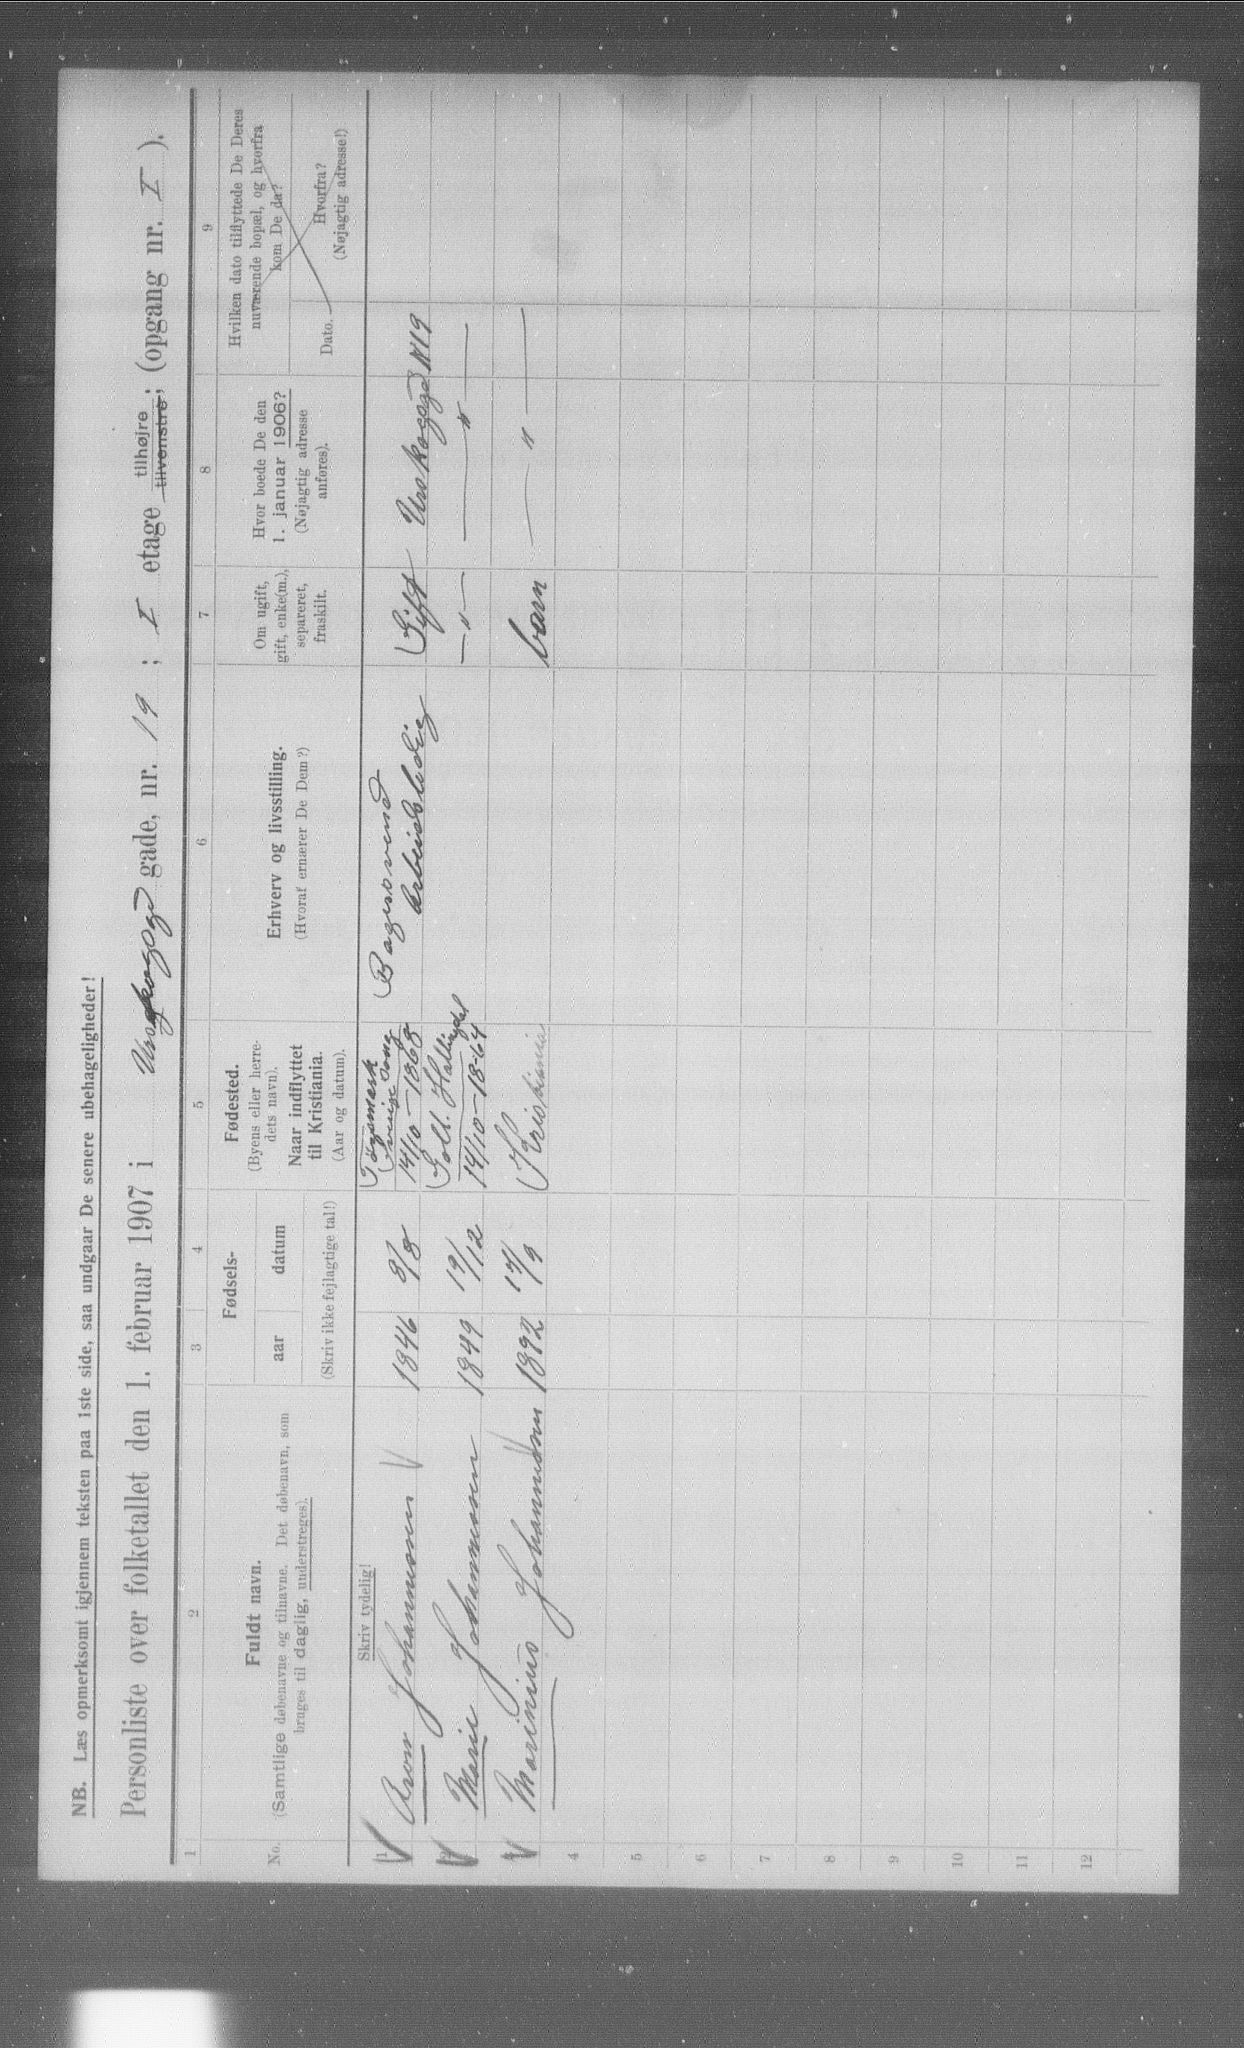 NB. Læs opmerksomt igjennem teksten paa 1ste side, saa undgaar De senere ubehageligheder!
Personliste over folketallet den 1. februar 1907 i Uraskogsgd gade, nr. 19 ; I etage tilhøjre tilvenstre; (opgang nr. I ).
1 2 3 4 5 6 7 8 9
No.
Fuldt navn.
(Samtlige døbenavne og tilnavne. Det døbenavn, som
bruges til daglig, understreges).
Fødsels-
aar datum
(Skriv ikke fejlagtige tal!)
Fødested.
(Byens eller herre-
dets navn).
Naar indflyttet
til Kristiania.
(Aar og datum).
Erhverv og livsstilling.
(Hvoraf ernærer De Dem?)
Om ugift,
gift, enke(m.),
separeret,
fraskilt.
Hvor boede De den
1. januar 1906?
(Nøjagtig adresse
anføres).
Hvilken dato tilflyttede De Deres
nuværende bopæl, og hvorfra
kom De da?
Dato.
Hvorfra?
(Nøjagtig adresse!)
Skriv tydelig!
1 Aron Johannesen 1846 8/8 14/10-1868 Bagersvend Arbeidsledig Gift N 19
2 Marie Johannesen 1849 19/12 Goll. Hallingdal 14/10-1864 — " — — " —
3 Marinius Johannesen 1892 17/9 Kristiania barn — " —
4
5
6
7
8
9
10
11
12